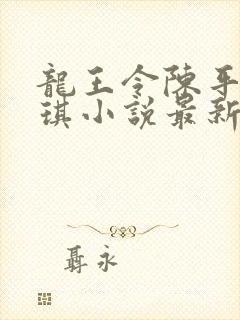 龍王令陳平
琪小說最新
聶永